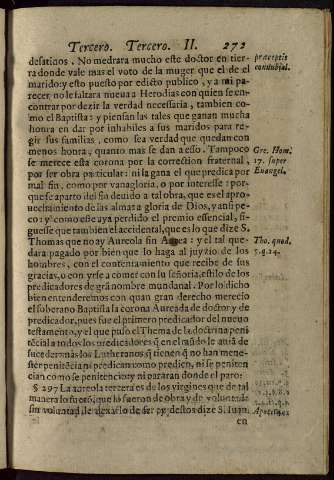 Tercero. Tercero. II. 272
desatinos. No medrara mucho este dotor en tier-
ra donde vale mas el voto de la muger que el de el
marido: y esto puesto por edicto publico, y a mi pa-
recer no le faltara nueua Herodias con quien se en-
contrar por dezir la verdad necessaria, tambien co-
mo el Baptista: y piensan las tales que ganan mucha
honra en dar por inhabiles a sus maridos para re-
gir sus familias, como sea verdad que quedan con
menos honra, quanto mas se dan a esso. Tampoco
se merece esta corona por la correction fraternal,
por ser obra particular: ni la gana el que predica por
mal fin, como por vanagloria, o por interesse: por-
que se aparto del fin deuido a tal obra, que es el apro-
uechamiento de las almas y gloria de Dios, y ansi pe-
co: y como este aya perdido el premio essencial, si-
guesse que tambien el accidental, que es lo que dize S.
Thomas que no ay Aureola sin Aurea: y el tal que-
dara pagado por bien que lo haga al juyzio de los
hombres, con el contentamiento que recibe de sus
gracias, o con yrse a comer con su señoria, estilo de los
predicadores de grã nombre mundanal. Por lo dicho
bien entenderemos con quan gran derecho merecio
el soberano Baptista la corona Aureada de doctor y de
predicador, pues fue el primero predicador del nueuo
testamento, y el que puso el Thema de la doctrina peni
tẽcial a todos los predicadores q̃ en el mũdo le auiã de
suceder: mas los Lutheranos q̃ tienen q̃ no han mene-
ster penitẽcia ni predican como predico, ni se peniten
cian como se penitencio: y ni pararan donde el paro.
§ 297 La aureola tercera es de los virgines que de tal
manera lo fuerõ, que lo fueron de obra y de voluntad
sin voluntad de dexarlo de ser: y destos dize S. Iuan,
en
præceptis
connubial.
Gre. Hom.
17. super
Euangel.
Tho. quod.
5. q. 24.
Apocal.